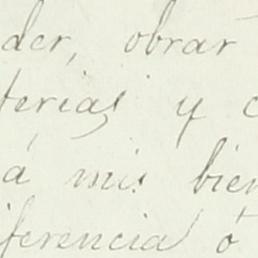 der, obrar
terias y c
á mis bien
iferencia ó